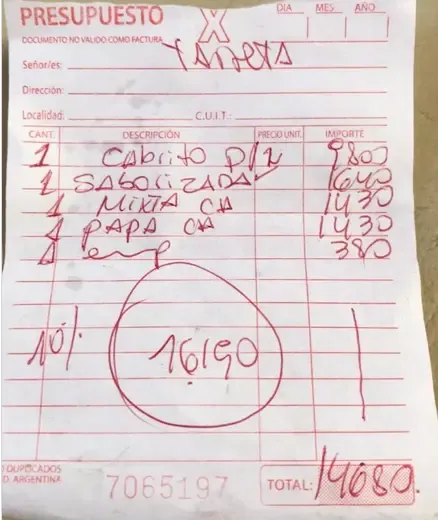 PRESUPUESTO
X
DIA MES AÑO
DOCUMENTO NO VALIDO COMO FACTURA
TARJETA
Señor/es:
Dirección:
Localidad: C.U.I.T.:
CANT. DESCRIPCIÓN PRECIO UNIT. IMPORTE
1 CAbrito P/2 9800
1 SABORIZADA 1640
1 MIXTA CH 1430
1 PAPA CH 1430
1 emp 380
10% 16190
DUPLICADOS
D. ARGENTINA
7065197
TOTAL: 14680.